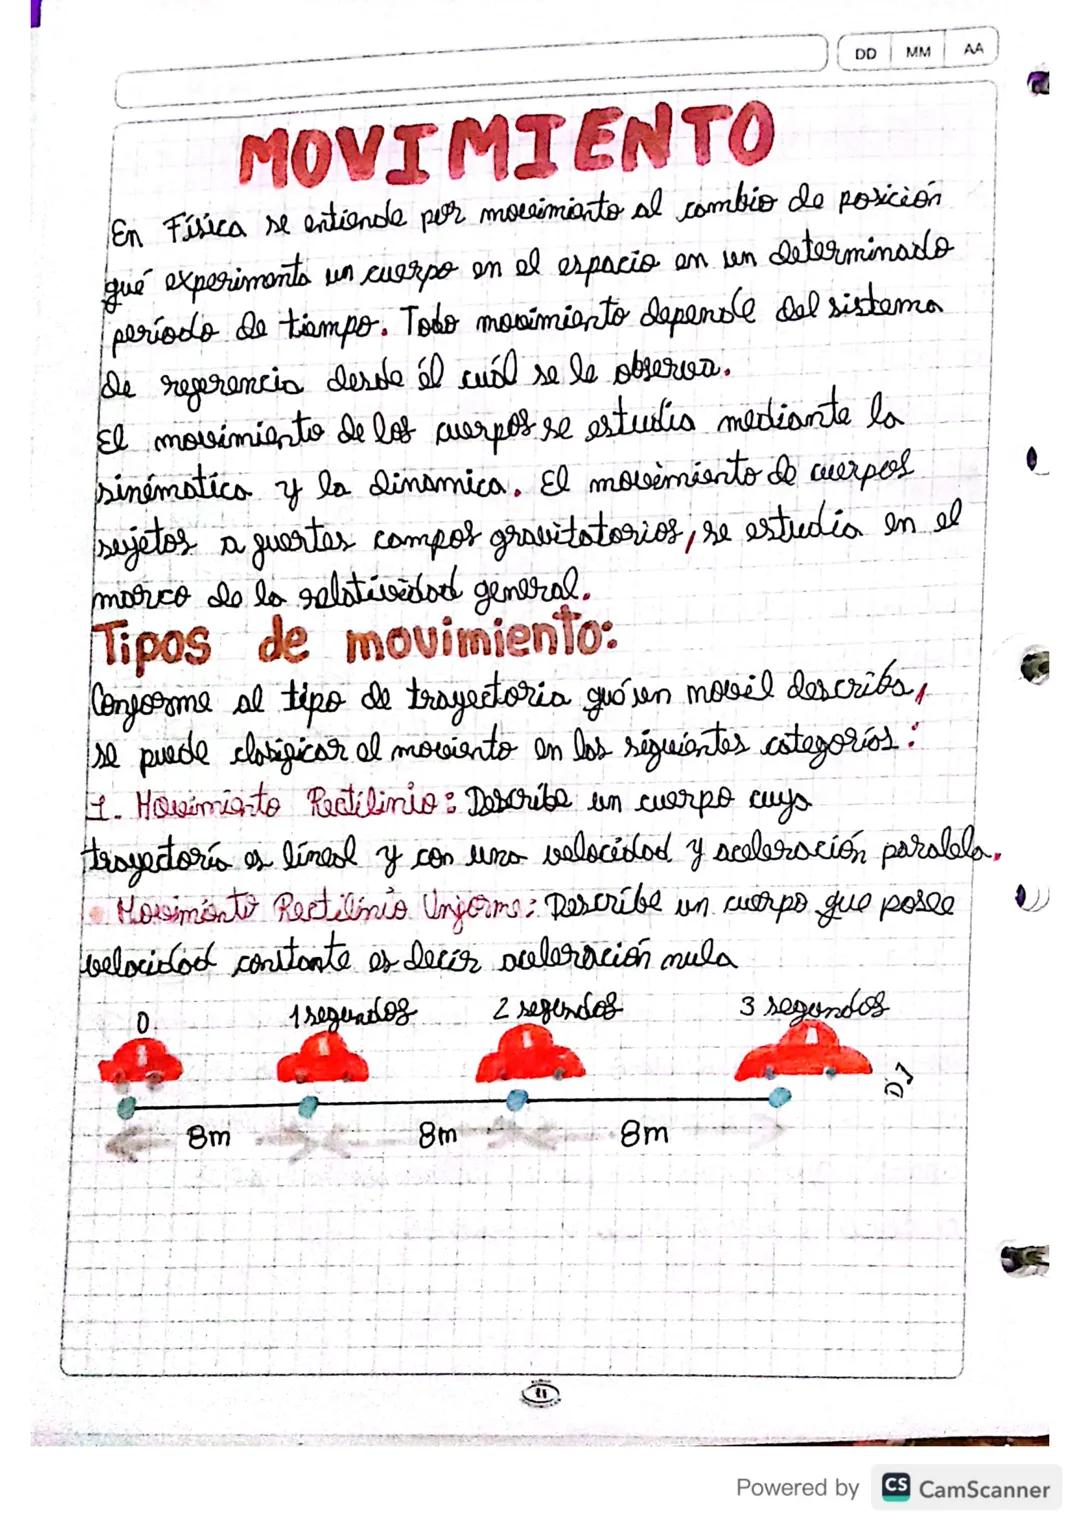 DD MM AA
MOVIMIENTO
En Física se entiende por movimiento al cambio de posición
qué experimenta un cuerpo en el espacio en un determinado
período de tiempo. Todo movimiento depende del sistema
de referencia desde él cuál se le observa.
El movimiento de los cuerpos se estudia mediante la
sinématica y la dinamica. El movimiento de cuerpos
sujetos a fuertes campos gravitatorios, se estudia en el
marco de la relatividad general.
Tipos de movimiento:
Conforme al tipo de trayectoria qué un movil describa,
se puede clasificar el moviento en las siguientes categorías:
1. Movimiento Rectilinio: Describe un cuerpo cuya
trayectoría es líneal y con una velocidad y aceleración paralela.
Movimiento Rectilinio Uniforme: Describe un cuerpo que posee
velocidad constante es decir aceleración nula
0 1 segundos 2 segundos 3 segundos
DJ
8m 8m 8m
Powered by CS CamScanner